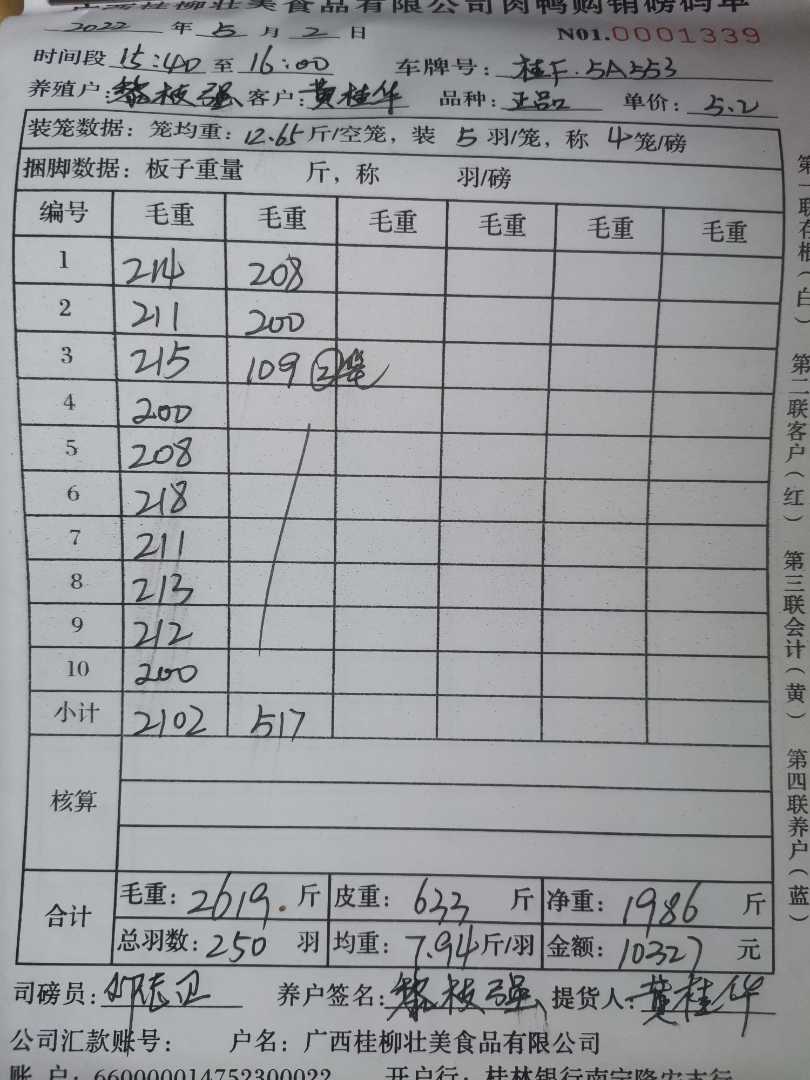 广西桂柳壮美食品有限公司肉鸭购销磅码单
2022 年 5 月 2 日 N01.0001339
时间段 15:40 至 16:00 车牌号: 桂F.5A553
养殖户: 黎枝强 客户: 黄桂华 品种: 正品 单价: 5.2
装笼数据: 笼均重: 12.65 斤/空笼, 装 5 羽/笼, 称 4 笼/磅
捆脚数据: 板子重量 斤, 称 羽/磅
编号 毛重 毛重 毛重 毛重 毛重 毛重
1 214 208
2 211 200
3 215 109 ②笼
4 200
5 208
6 218
7 211
8 213
9 212
10 200
小计 2102 517
核算
合计 毛重: 2619. 斤 皮重: 633 斤 净重: 1986 斤
总羽数: 250 羽 均重: 7.94 斤/羽 金额: 10327 元
司磅员: 养户签名: 黎枝强 提货人: 黄桂华
公司汇款账号: 户名: 广西桂柳壮美食品有限公司
账 户: 660000014752300022 开户行: 桂林银行南宁隆安支行
第一联存根(白) 第二联客户(红) 第三联会计(黄) 第四联养户(蓝)